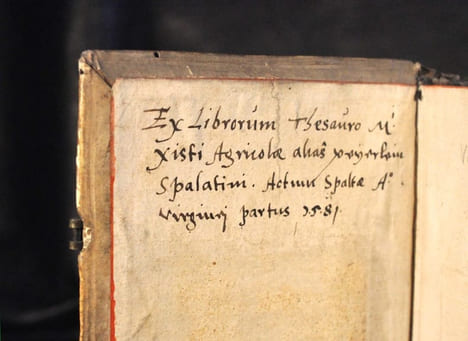 Ex Librorum Thesauro M:
Xisti Agricolæ alias
Spalatini. Actum Spaltæ A°.
virginei partus 1581